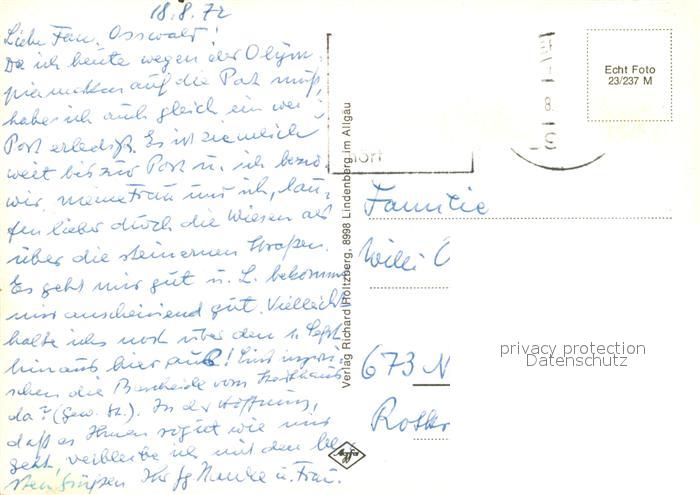 18.8.72
Liebe Frau Osswald!
Da ich heute wegen der Olym-
piamarken auf die Post muß,
habe ich auch gleich ein wenig
Post erledigt. Es ist ziemlich
weit bis zur Post u. ich bezw.
wir, meine Frau und ich, lau-
fen lieber durch die Wiesen als
über die steinernen Straßen.
Es geht mir gut u. L. bekommt
mir anscheinend gut. Vielleicht
halte ichs noch über den 1. Sept.
hinaus hier aus! Sind inzwi-
schen die Bescheide vom
da? (Gew. St.). In der Hoffnung,
daß es Ihnen so gut wie mir
geht, verbleibe ich mit den be-
sten Grüßen Ihr u. Frau.
Verlag Richard Holtzberg, 8998 Lindenberg im Allgäu
Echt Foto
23/237 M
8.
Familie
Willi O
673 N
privacy protection
Datenschutz
Agfa